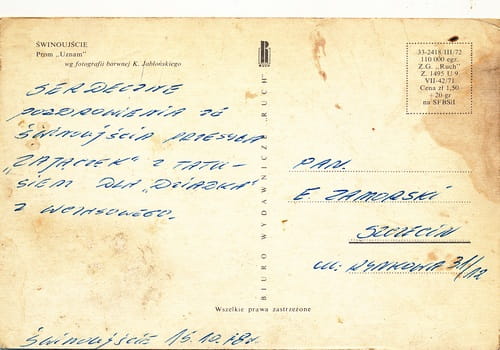 ŚWINOUJŚCIE
Prom „Uznam"
wg fotografii barwnej K. Jabłońskiego
SERDECZNE
POZDROWIENIA ZE
ŚWINOUJŚCIA PRZESYŁA
„ZAJĄCZEK" Z TATU-
SIEM DLA „DZIADKA"
Z WCZASOWEGO.
ŚWINOUJŚCIE 15.10.78r
BIURO WYDAWNICZE „RUCH"
33-2418 III/72
110 000 egz.
Z.G. „Ruch"
Z. 1495 U 9
VII-42/71
Cena zł 1,50
+20 gr
na SFBSiI
PAN.
E. ZAMORSKI
SZCZECIN
UL: RYNKOWA 31/12
Wszelkie prawa zastrzeżone